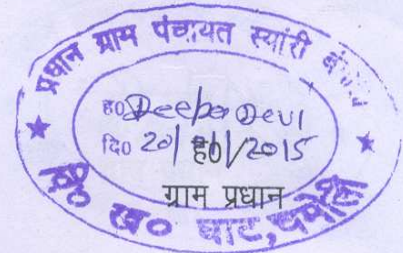 प्रधान ग्राम पंचायत स्यांरी
ह० Deepa Devi
दि० 20/ /2015
ह०/
ग्राम प्रधान
वि० ख० घाट, चमोली